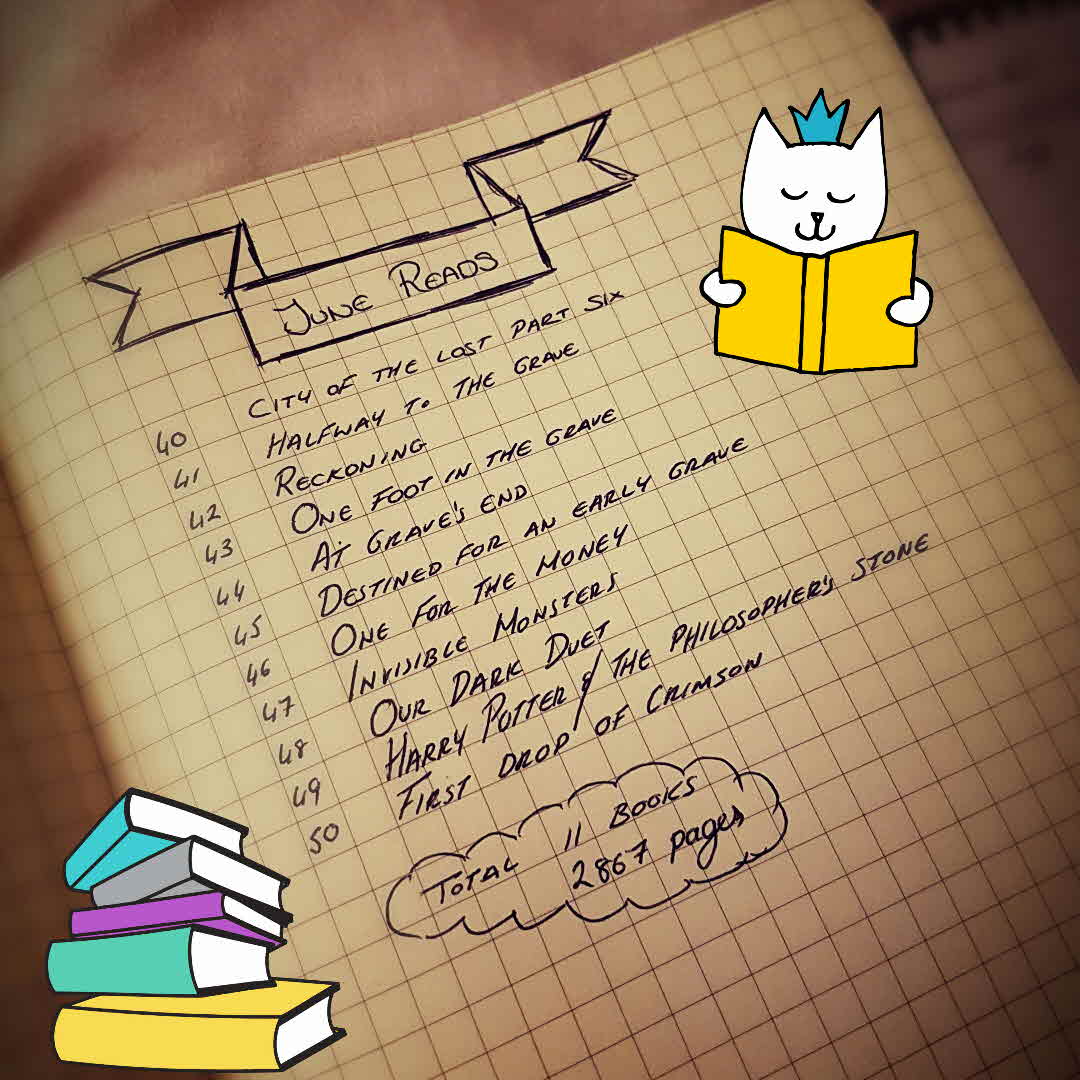 JUNE READS
40 CITY OF THE LOST PART SIX
41 HALFWAY TO THE GRAVE
42 RECKONING
43 ONE FOOT IN THE GRAVE
44 AT GRAVE'S END
45 DESTINED FOR AN EARLY GRAVE
46 ONE FOR THE MONEY
47 INVISIBLE MONSTERS
48 OUR DARK DUET
49 HARRY POTTER & THE PHILOSOPHER'S STONE
50 FIRST DROP OF CRIMSON
TOTAL 11 BOOKS
2867 pages